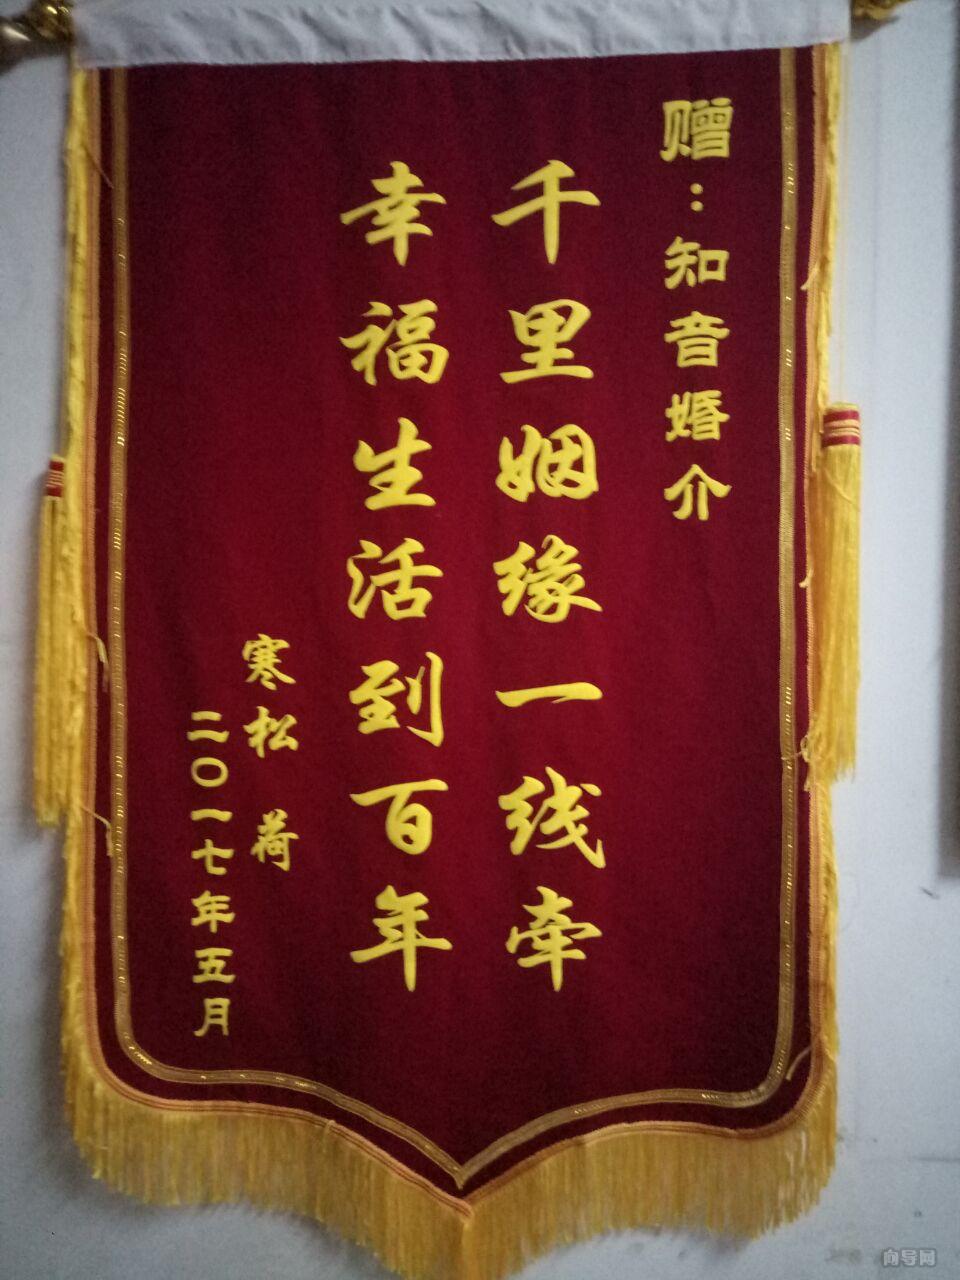 赠：知音婚介
千里姻缘一线牵
幸福生活到百年
寒松 荷
二〇一七年五月
向导网